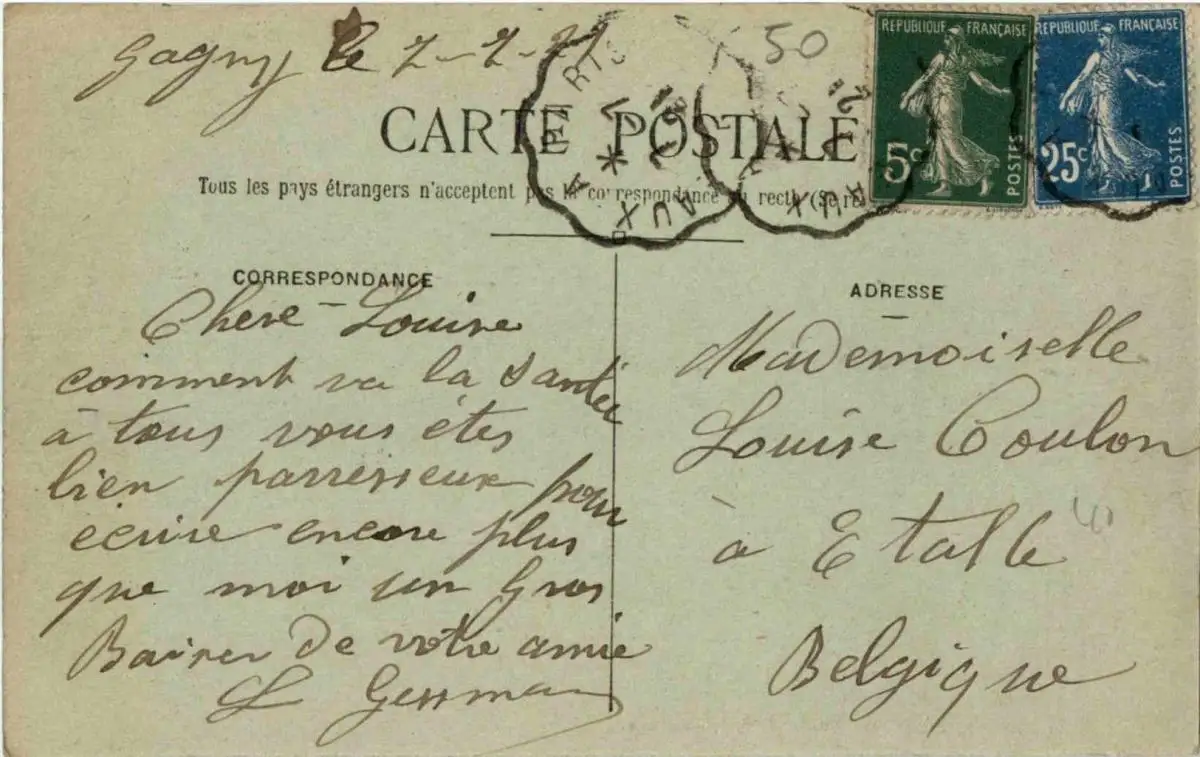 Gagny le 7-2-21
50
REPUBLIQUE FRANÇAISE
5c POSTES
REPUBLIQUE FRANÇAISE
25c POSTES
CARTE POSTALE
Tous les pays étrangers n'acceptent pas la correspondance au recto (Se re
CORRESPONDANCE
Chere Louise
comment va la santée
à tous vous étes
bien parresseux pour
écrire encore plus
que moi un Gros
Baiser de votre amie
L Gessman
ADRESSE
Mademoiselle
Louise Coulon
à Etalle
Belgique